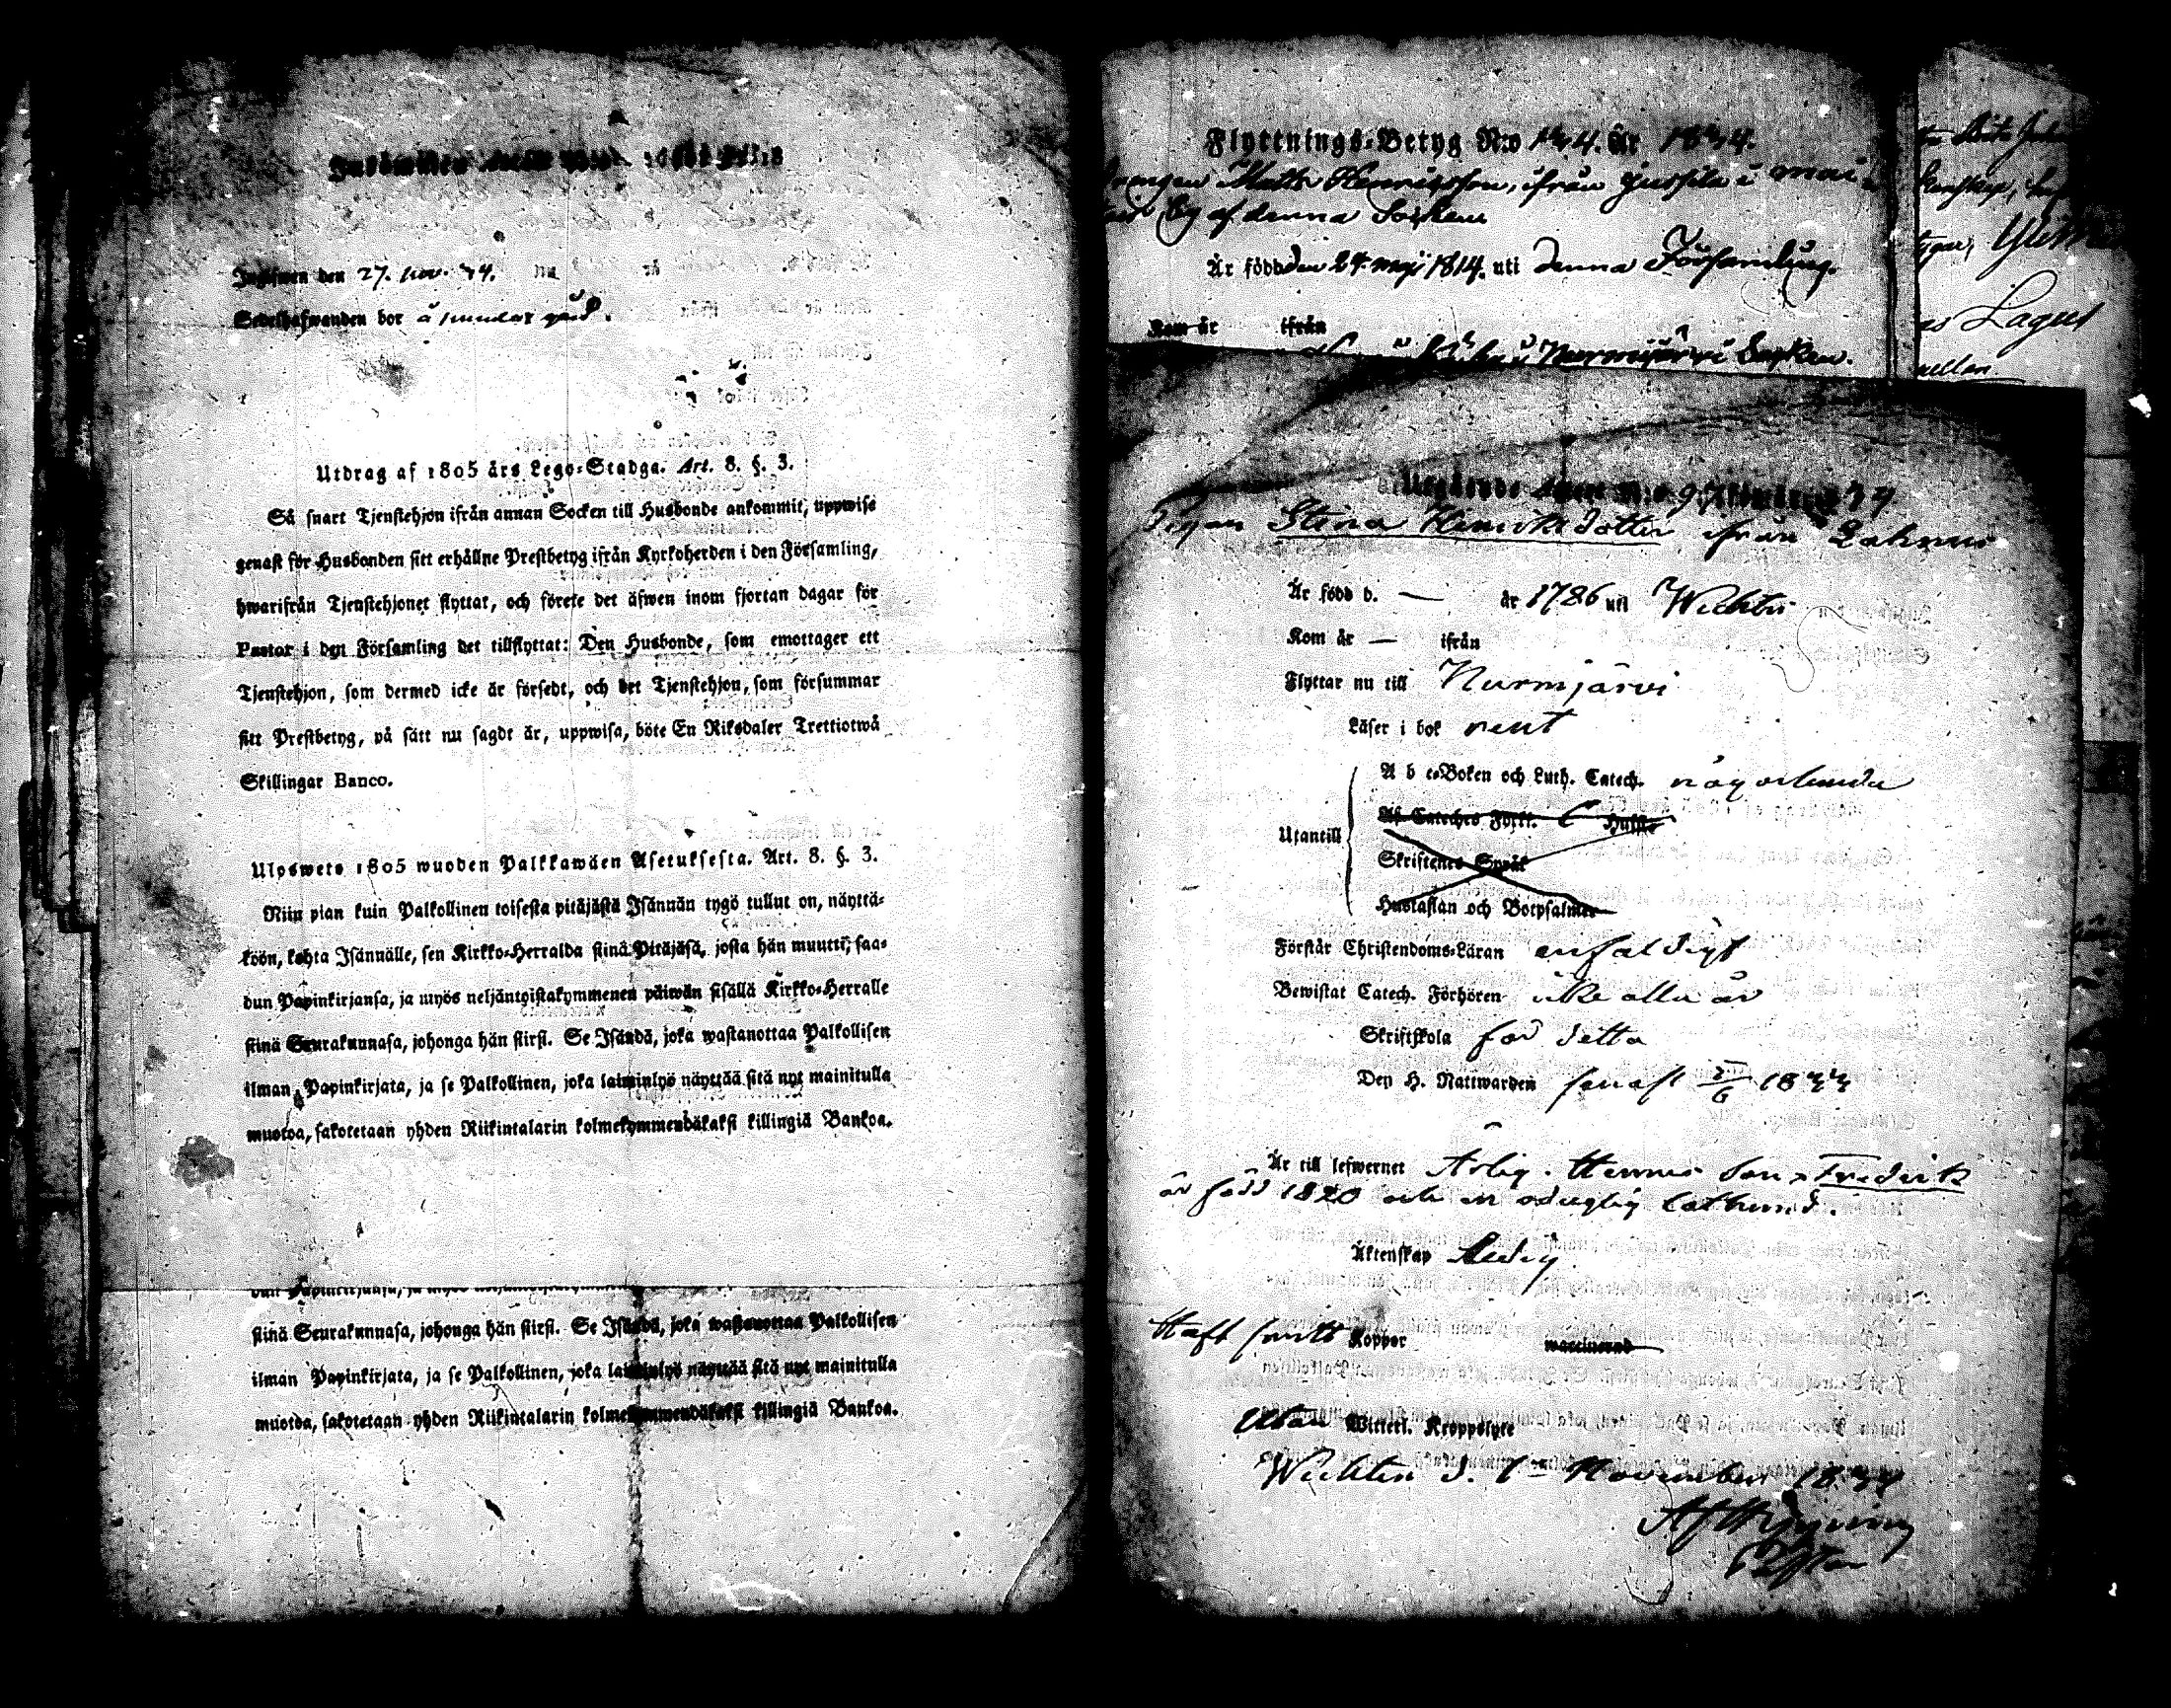 Ingifwen den 27. nov. 44.
Sedelhafwanden bor å
Utdrag af 1805 års Lego-Stadga. Art. 8. §. 3.
Så snart Tjenstehjon ifrån annan Socken till Husbonde ankommit, uppwise
genast för Husbonden sitt erhållne Prestbetyg ifrån Kyrkoherden i den Församling,
hwarifrån Tjenstehjonet flyttat, och förete det äfwen inom fjortan dagar för
Pastor i den Församling det tillflyttat: Den Husbonde, som emottager ett
Tjenstehjon, som dermed icke är försedt, och det Tjenstehjon, som försummar
sitt Prestbetyg, på sätt nu sagdt är, uppwisa, böte En Riksdaler Trettiotwå
Skillingar Banco.
Ulosweto 1805 wuoden Palkkawäen Asetuksesta. Art. 8. §. 3.
Niin pian kuin Palkollinen toisesta pitäjästä Isännän tygö tullut on, näyttä-
köön, kohta Isännälle, sen Kirkko-Herralda siinä Pitäjäsä, josta hän muutti, saa-
dun Papinkirjansa, ja myös neljäntoistakymmenen päiwän sisällä Kirkko-Herralle
siinä Seurakunnasa, johonga hän siirsi. Se Isändä, joka wastanottaa Palkollisen
ilman Papinkirjata, ja se Palkollinen, joka laiminlyö näyttää sitä nyt mainitulla
muotoa, sakotetaan yhden Riikintalarin kolmekymmendäkaksi killingiä Bankoa.
siinä Seurakunnasa, johonga hän siirsi. Se Isändä, joka wastanottaa Palkollisen
ilman Papinkirjata, ja se Palkollinen, joka laiminlyö näyttää sitä nyt mainitulla
muotoa, sakotetaan yhden Riikintalarin kolmekymmendäkaksi killingiä Bankoa.
Flyttnings-Betyg N:o 144. År 1844.
Drängen Matts Henriksson, ifrån Jussila i
by af denna Socken
Är född den 24 maji 1814. uti denna Församling.
Kom år ifrån
Nurmijärvi Socken.
Lagus
Utgående
Pigan Stina Henriksdotter ifrån Lahnus
Är född d. — år 1786 uti Wichtis
Kom år — ifrån
Flyttar nu till Nurmjärvi
Läser i bok rent
Utantill
A b c-Boken och Luth. Catech. någorlunda
Af Cateches Förkl. Hufst.
Skriftenes Språk
Hustaflan och Botpsalmer
Förstår Christendoms-Läran enfaldigt
Bewistat Catech. Förhören icke alla år
Skriftskola för detta
Den H. Nattwarden senast 1844
Är till lefwernet Ärlig. Hennes Son, Fredrik
är född 1820 och en oduglig lathund.
Äktenskap Ledig
Haft Koppor waccinerad
Utan Witterl. Kroppslyte
Wichtis d. November 1844